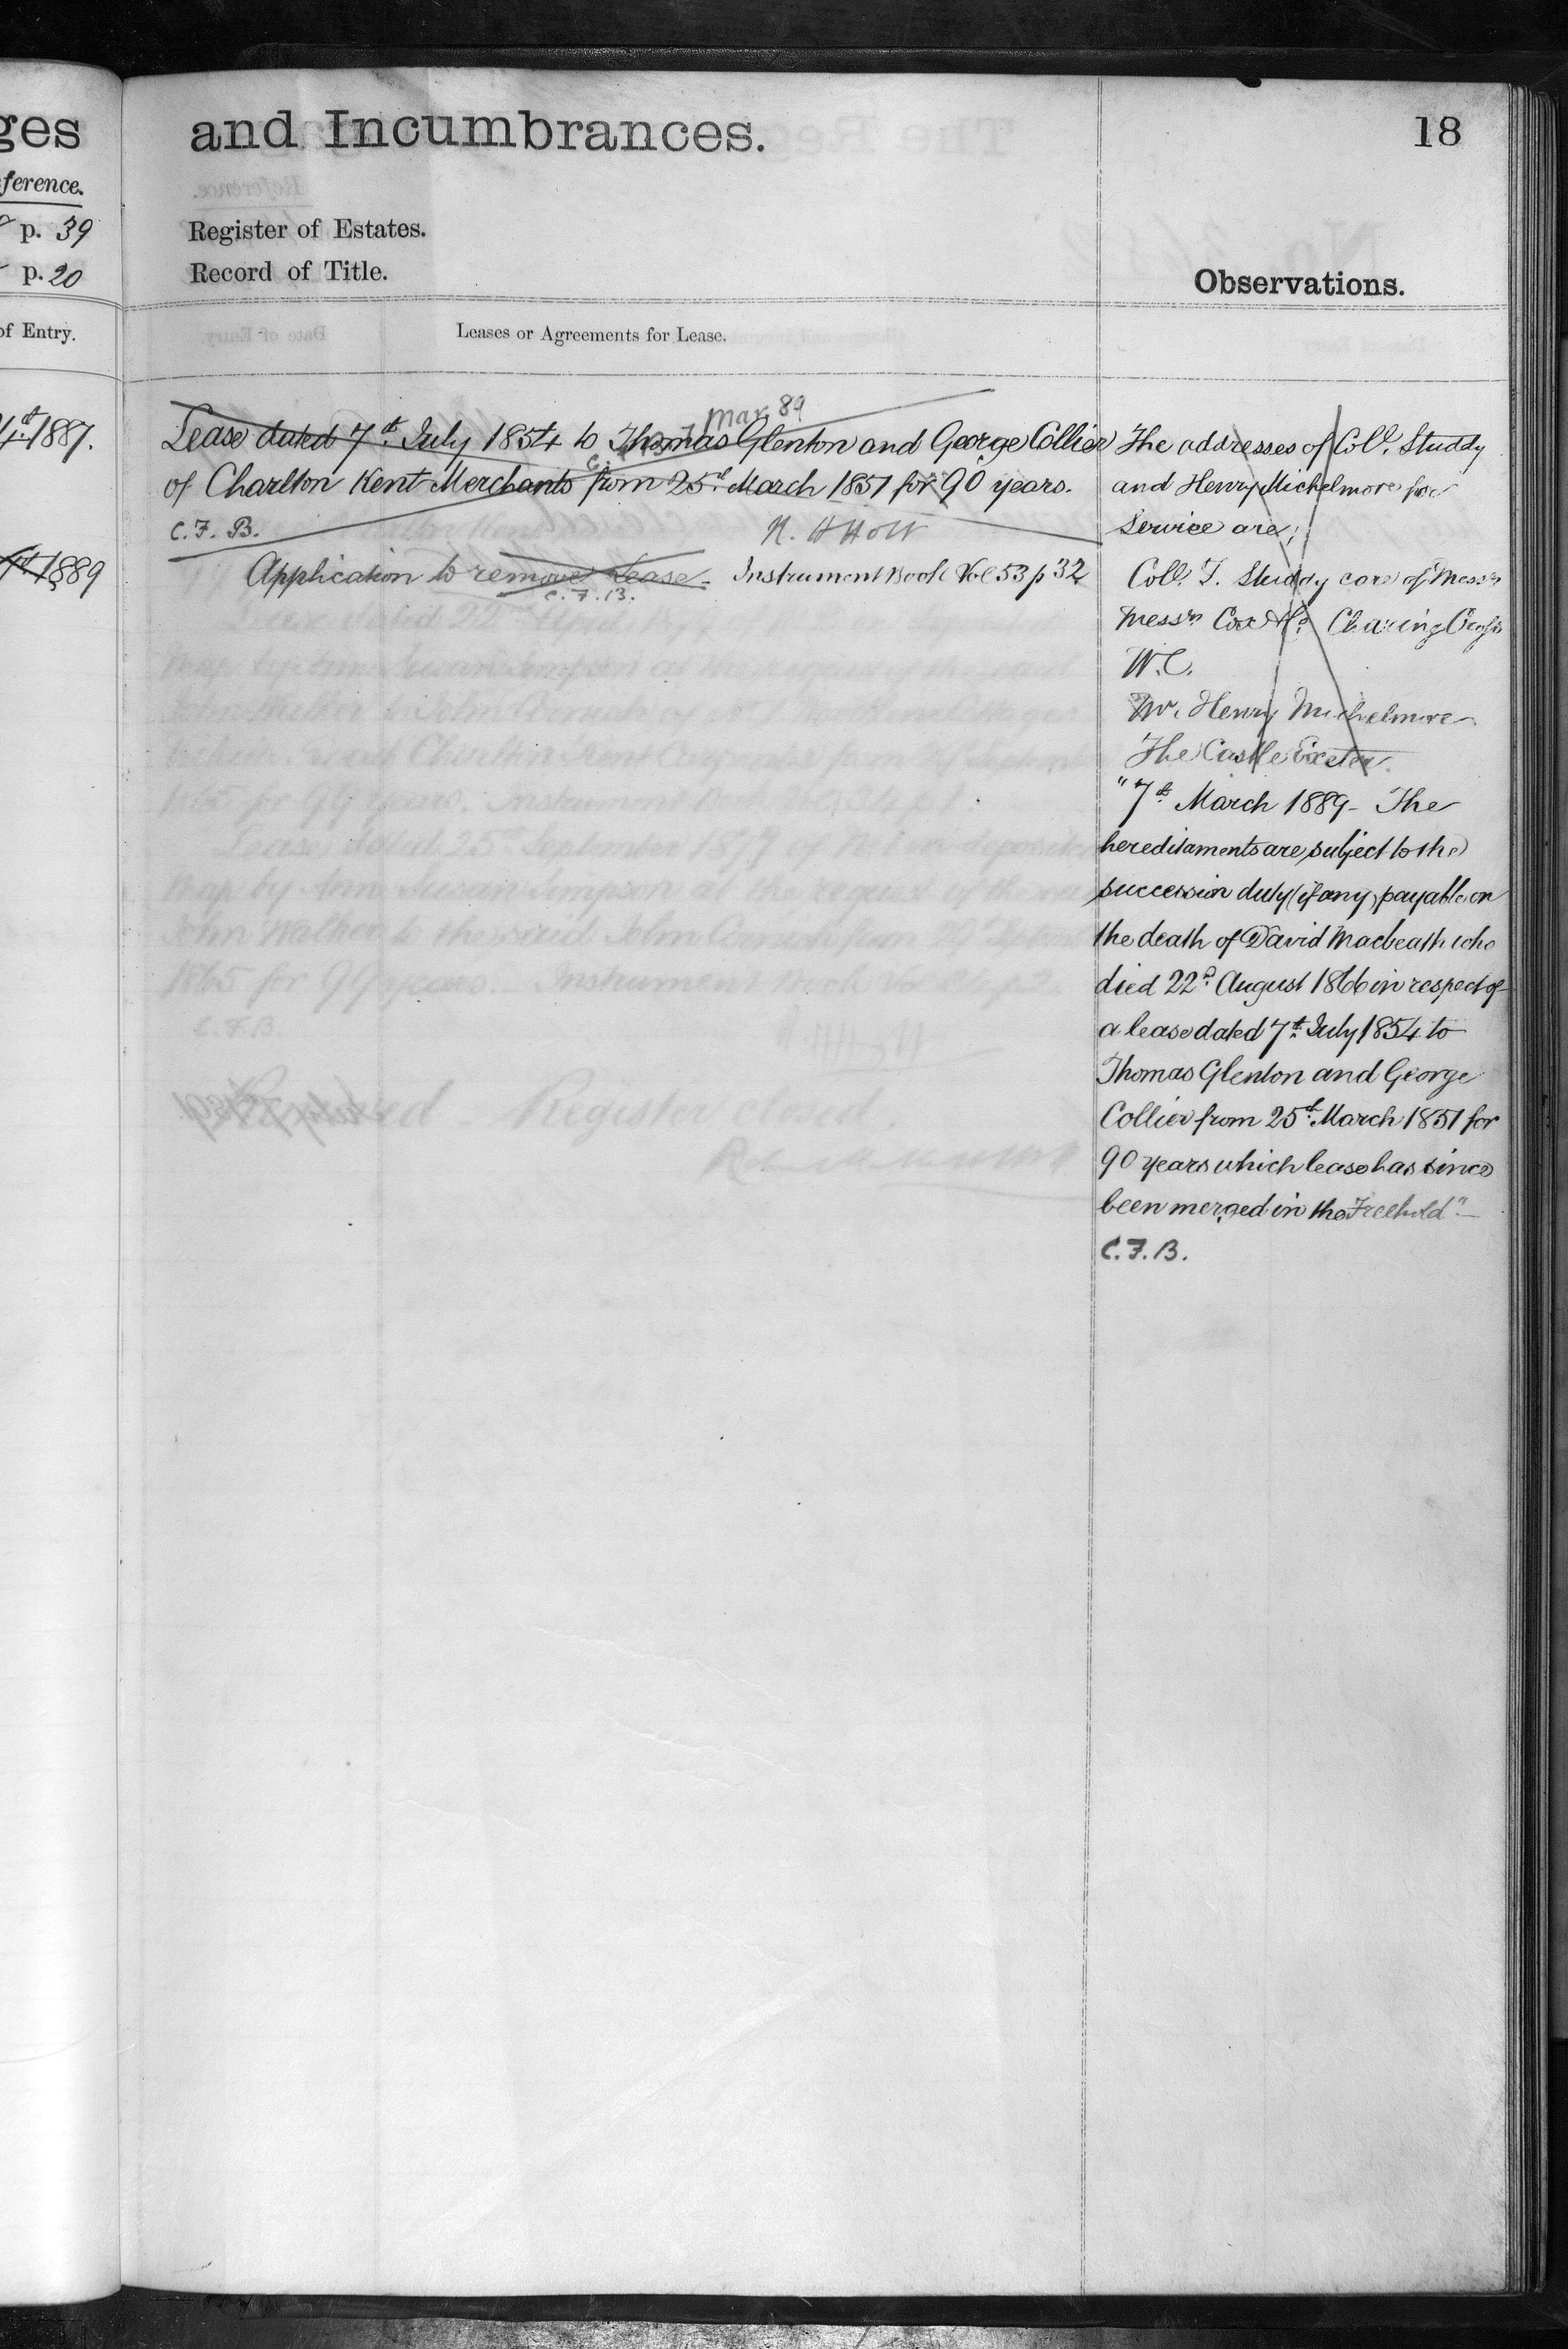 ges
ference.
p. 39
p. 20
of Entry.
1887.
1889
and Incumbrances.
18
Register of Estates.
Record of Title.
Observations.
Leases or Agreements for Lease.
Mar. 89
Lease dated 7th July 1854 to Thomas Glenton and George Collier
of Charlton Kent Merchants from 25th March 1851 for 90 years.
C. F. B.
N. H Holt
Application to remove Lease. Instrument Book Vol 53 p 32
C. F. B.
The addresses of Coll. Studdy
and Henry Michelmore for
Service are;
Coll. T. Studdy care of Messrs
Messrs Cox & Co Charing Cross
W.C.
Mr. Henry Michelmore
The Castle Exeter.
"7th March 1889 - The
hereditaments are subject to the
succession duty (if any) payable on
the death of David Macbeath who
died 22d August 1866 in respect of
a lease dated 7th July 1854 to
Thomas Glenton and George
Collier from 25th March 1851 for
90 years which lease has since
been merged in the Freehold"
C. F. B.